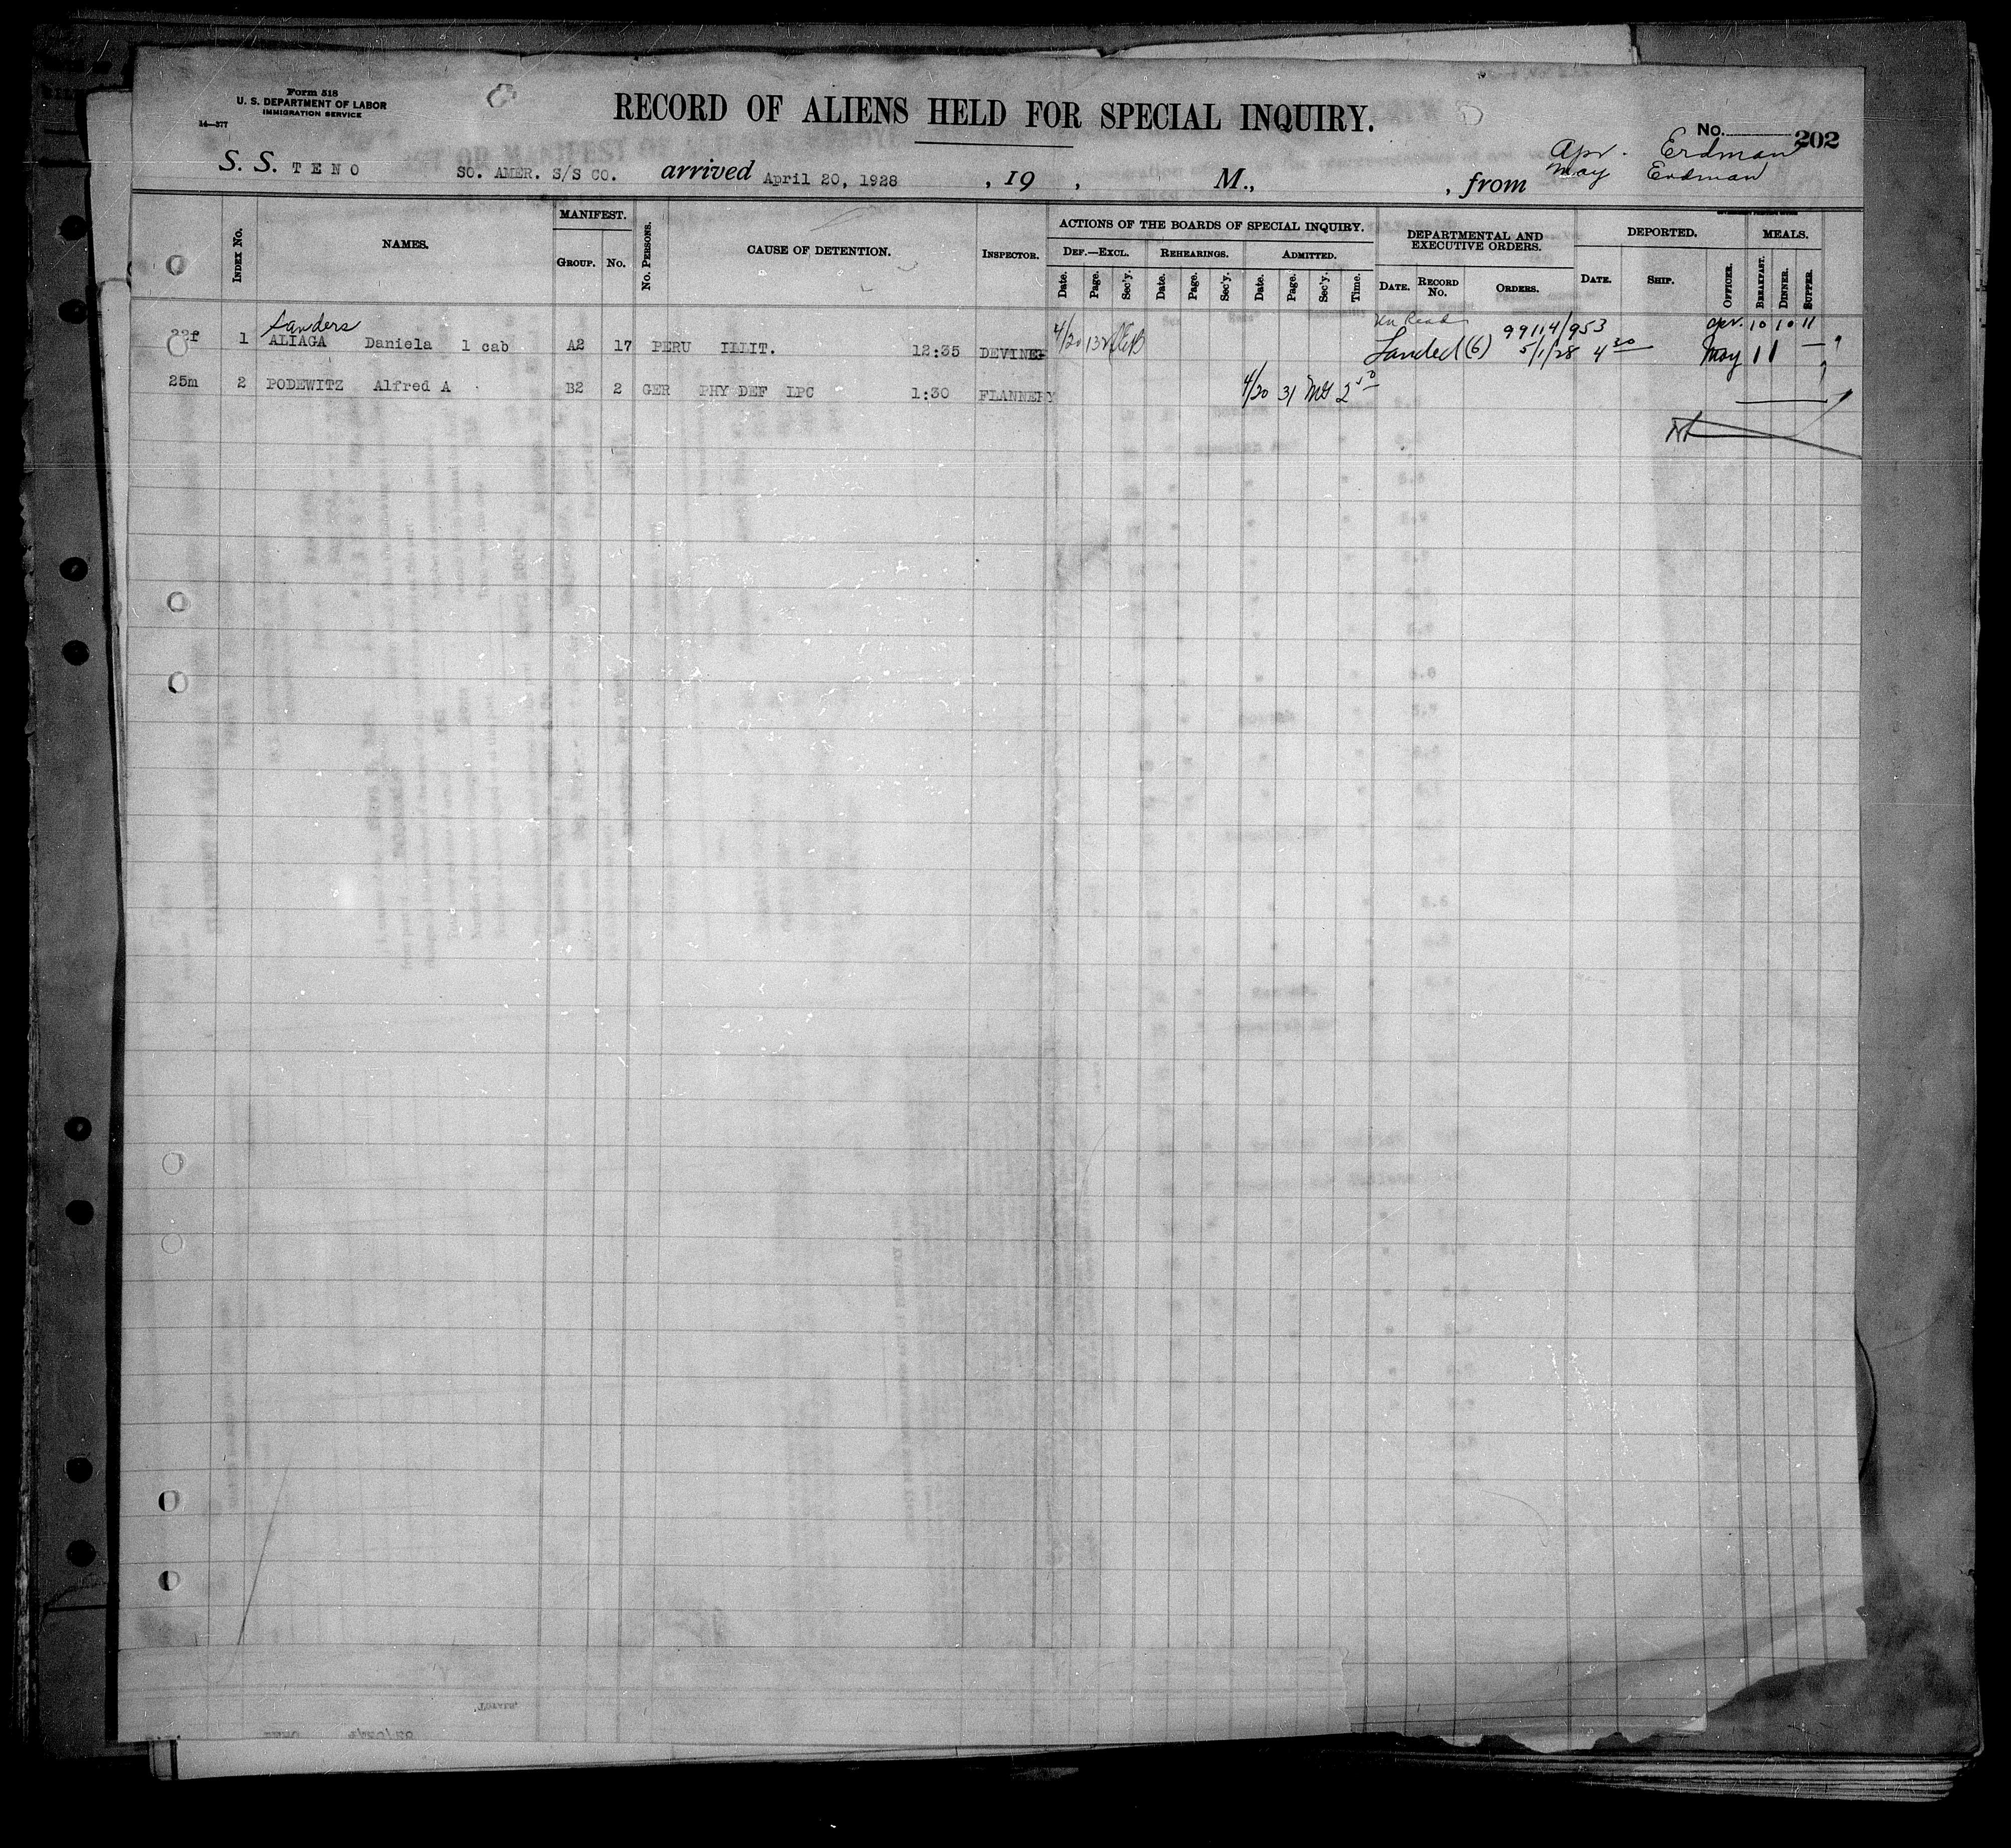 Form 518
U. S. DEPARTMENT OF LABOR
IMMIGRATION SERVICE
14—377
RECORD OF ALIENS HELD FOR SPECIAL INQUIRY.
No. 202
Apr. Erdman
May Erdman
S. S. TENO SO. AMER. S/S CO. arrived April 20, 1928 , 19 , M., , from
INDEX No. NAMES. MANIFEST. GROUP. No. No. PERSONS. CAUSE OF DETENTION. INSPECTOR. ACTIONS OF THE BOARDS OF SPECIAL INQUIRY. DEPARTMENTAL AND EXECUTIVE ORDERS. DEPORTED. MEALS.
DEF.—EXCL. REHEARINGS. ADMITTED.
Date. Page. Sec'y. Date. Page. Sec'y. Date. Page. Sec'y. Time. DATE. RECORD No. ORDERS. DATE. SHIP. OFFICER. BREAKFAST. DINNER. SUPPER.
Sanders 99114/953 Apr. 10 10 11
22f 1 ALIAGA Daniela 1 cab A2 17 PERU ILLIT. 12:35 DEVINE 4/20 132 Landed (6) 5/1/28 4 30 May 1 1 —
25m 2 PODEWITZ Alfred A B2 2 GER PHY DEF LPC 1:30 FLANNERY 4/20 31